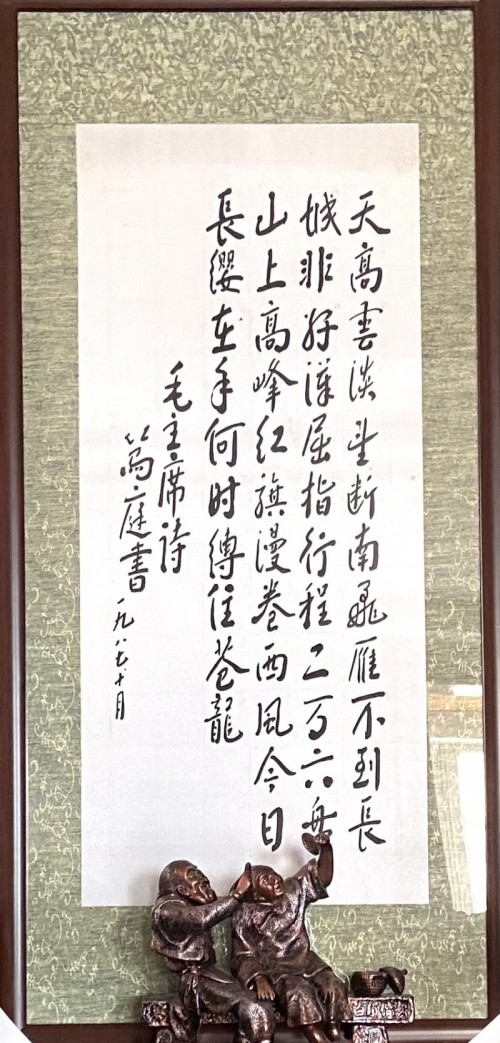 天高雲淡望断南飛雁不到長
城非好漢屈指行程二万六盘
山上高峰红旗漫卷西風今日
長缨在手何时缚住苍龍
毛主席詩
篤庭書 一九八七十月